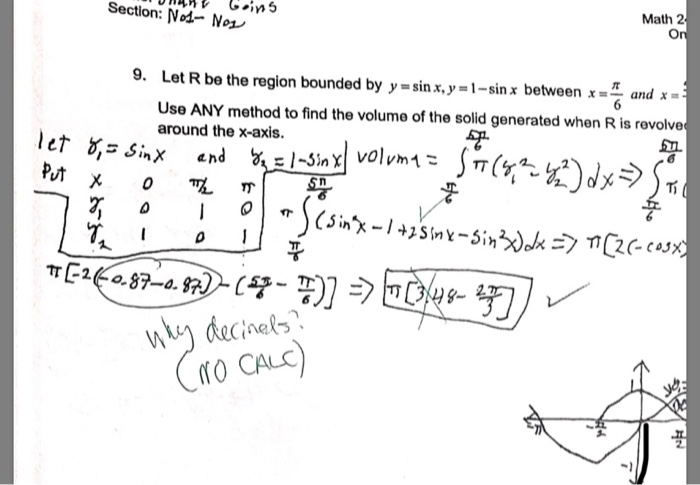 Goins
Section: No1- No2
Math 2
On
9. Let R be the region bounded by y = sin x, y = 1 – sin x between x = π/6 and x =
Use ANY method to find the volume of the solid generated when R is revolve
around the x-axis.
let y₁ = sinx and y₂ = 1-sinx volume = ∫_{π/6}^{5π/6} π(y₁²-y₂²)dx => ∫_{π/6}^{5π/6} π(
Put x 0 π/2 π
y₁ 0 1 0
y₂ 1 0 1
π ∫_{π/6}^{5π/6} (sin²x-1+2sinx-sin²x)dx => π[2(-cosx)
π[-2(-0.87-0.87)-(5π/6 - π/6)] => π[3.48- 2π/3] ✓
Why decimals?
(NO CALC)
1
-π
-π/2
π/2
-1